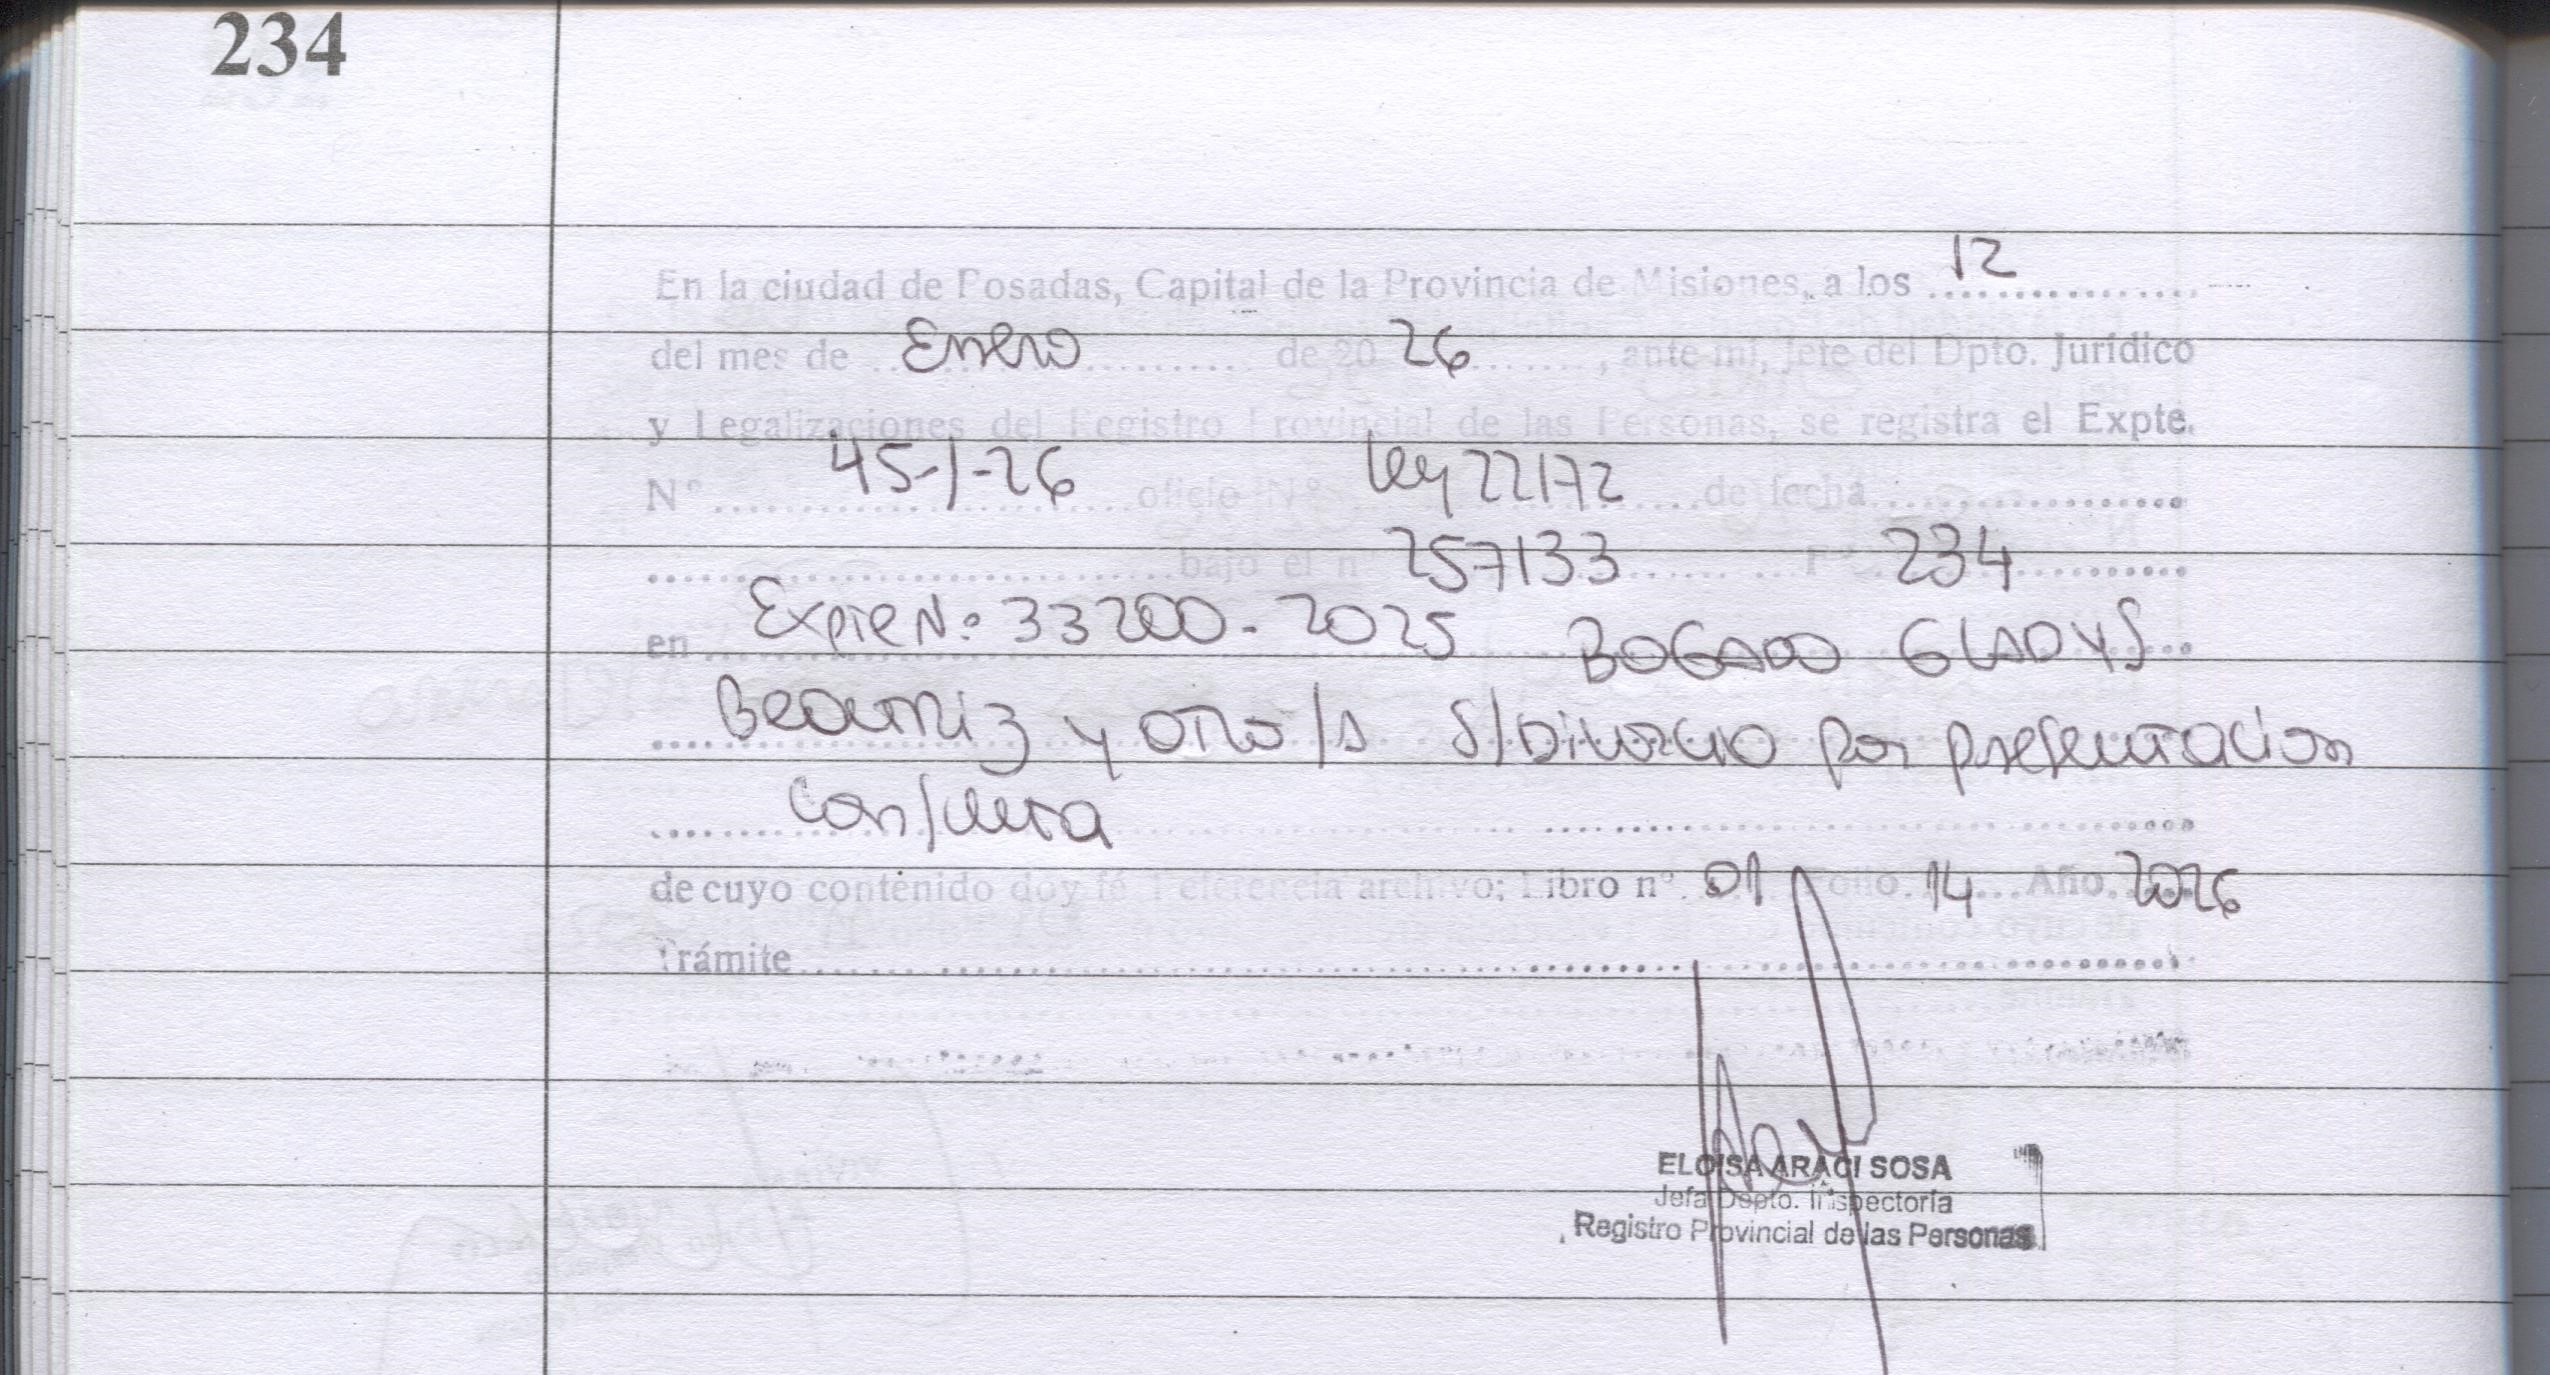 234
En la ciudad de Posadas, Capital de la Provincia de Misiones, a los 12
del mes de Enero de 20 26, ante mi, Jefe del Dpto. Jurídico
y Legalizaciones del Registro Provincial de las Personas, se registra el Expte.
N° 45-1-26 oficio N° Ley 22172 de fecha
bajo el n° 257133 F° 234
en Expte N° 33200-2025 BOGADO GLADYS
Beatriz y otro/a S/Divorcio por presentacion
Conjunta
de cuyo contenido doy fé Referencia archivo; Libro n° 01 Folio 14 Año 2026
Trámite
ELOISA ARACI SOSA
Jefa Depto. Inspectoría
Registro Provincial de las Personas